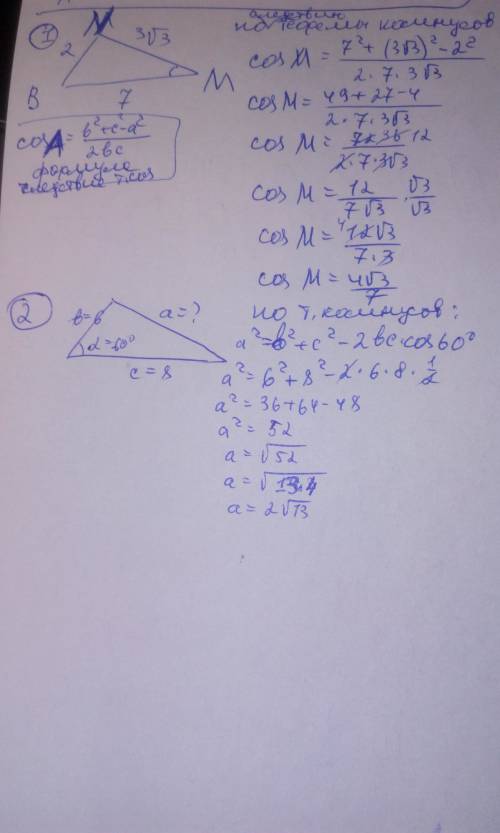 ① N
2 3√3
B 7 M
cos A = b²+c²-a² / 2bc
формула
следствие т. cos
следствию
по теоремы косинусов
cos M = 7² + (3√3)² - 2² / 2·7·3√3
cos M = 49+27-4 / 2·7·3√3
cos M = 72 36 12 / 2·7·3√3
cos M = 12 / 7√3 · √3 / √3
cos M = 4 12√3 / 7·3
cos M = 4√3 / 7
② b=6 a=?
α=60°
c=8
по т. косинусов:
a² = b² + c² - 2bc·cos60°
a² = 6² + 8² - 2·6·8·1/2
a² = 36+64-48
a² = 52
a = √52
a = √13·4
a = 2√13